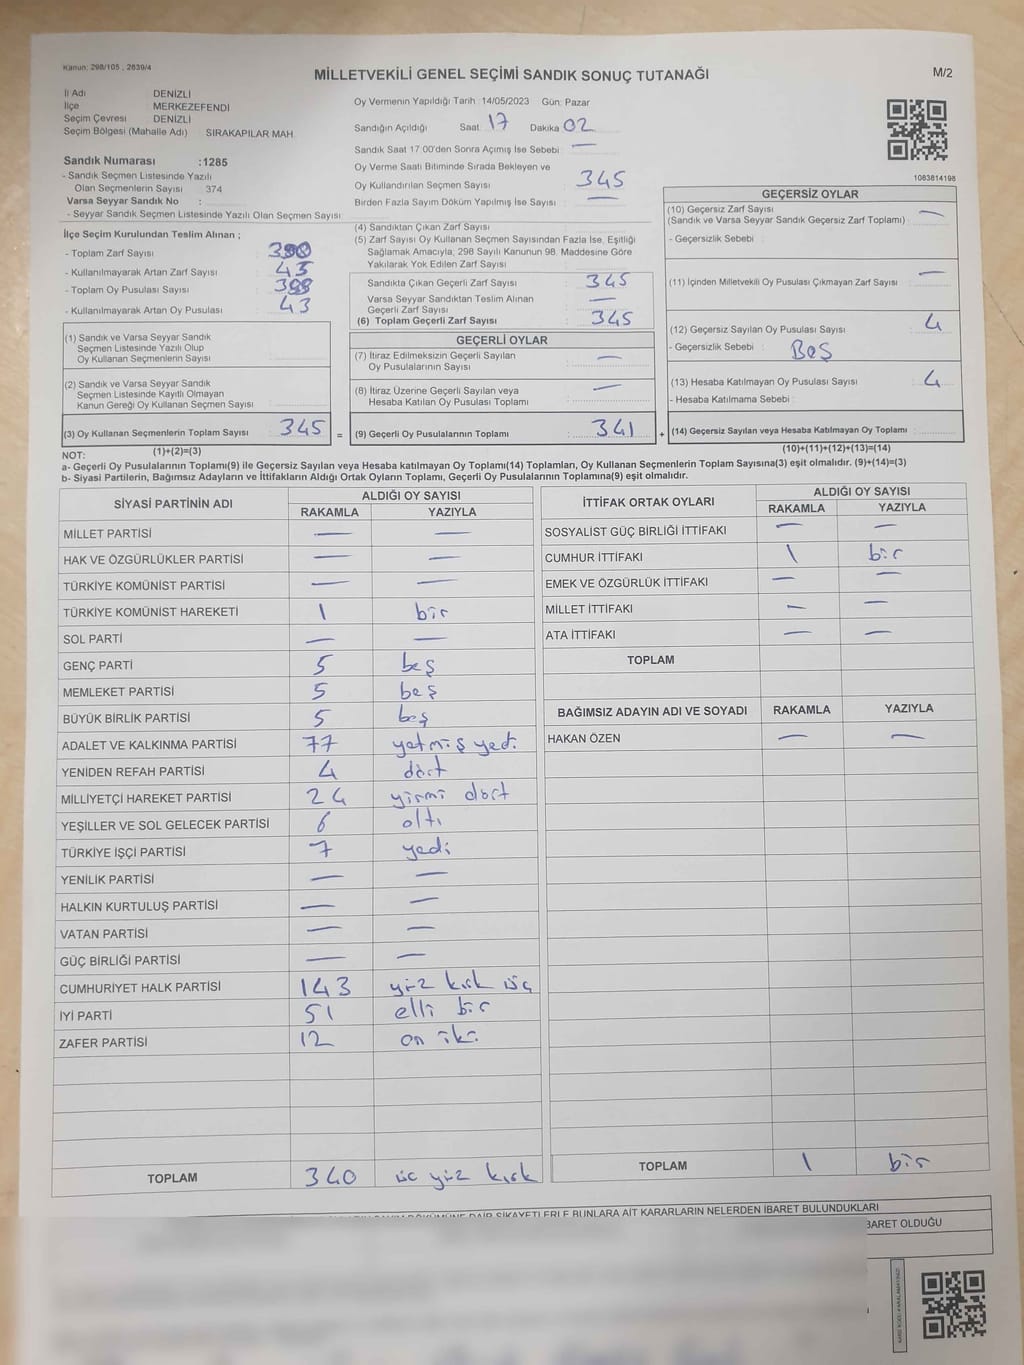 Kanun: 298/105 , 2839/4
MİLLETVEKİLİ GENEL SEÇİMİ SANDIK SONUÇ TUTANAĞI
M/2
İl Adı : DENİZLİ
İlçe : MERKEZEFENDİ
Seçim Çevresi : DENİZLİ
Seçim Bölgesi (Mahalle Adı) : SIRAKAPILAR MAH.
Oy Vermenin Yapıldığı Tarih :14/05/2023 Gün: Pazar
Sandığın Açıldığı Saat 17 Dakika 02
Sandık Saat 17:00'den Sonra Açımış İse Sebebi : —
Sandık Numarası :1285
- Sandık Seçmen Listesinde Yazılı
Olan Seçmenlerin Sayısı : 374
Varsa Seyyar Sandık No :
- Seyyar Sandık Seçmen Listesinde Yazılı Olan Seçmen Sayısı :
Oy Verme Saati Bitiminde Sırada Bekleyen ve
Oy Kullandırılan Seçmen Sayısı : 345
Birden Fazla Sayım Döküm Yapılmış İse Sayısı : —
1083814198
İlçe Seçim Kurulundan Teslim Alınan ;
- Toplam Zarf Sayısı :
- Kullanılmayarak Artan Zarf Sayısı : 43
- Toplam Oy Pusulası Sayısı :
- Kullanılmayarak Artan Oy Pusulası : 43
(1) Sandık ve Varsa Seyyar Sandık
Seçmen Listesinde Yazılı Olup
Oy Kullanan Seçmenlerin Sayısı
(2) Sandık ve Varsa Seyyar Sandık
Seçmen Listesinde Kayıtlı Olmayan
Kanun Gereği Oy Kullanan Seçmen Sayısı
(3) Oy Kullanan Seçmenlerin Toplam Sayısı 345 =
(4) Sandıktan Çıkan Zarf Sayısı :
(5) Zarf Sayısı Oy Kullanan Seçmen Sayısından Fazla İse, Eşitliği
Sağlamak Amacıyla, 298 Sayılı Kanunun 98. Maddesine Göre
Yakılarak Yok Edilen Zarf Sayısı :
Sandıkta Çıkan Geçerli Zarf Sayısı : 345
Varsa Seyyar Sandıktan Teslim Alınan
Geçerli Zarf Sayısı : —
(6) Toplam Geçerli Zarf Sayısı : 345
GEÇERLİ OYLAR
(7) İtiraz Edilmeksizin Geçerli Sayılan
Oy Pusulalarının Sayısı : —
(8) İtiraz Üzerine Geçerli Sayılan veya
Hesaba Katılan Oy Pusulası Toplamı : —
(9) Geçerli Oy Pusulalarının Toplamı : 341 +
GEÇERSİZ OYLAR
(10) Geçersiz Zarf Sayısı
(Sandık ve Varsa Seyyar Sandık Geçersiz Zarf Toplamı) : —
- Geçersizlik Sebebi :
(11) İçinden Milletvekili Oy Pusulası Çıkmayan Zarf Sayısı : —
(12) Geçersiz Sayılan Oy Pusulası Sayısı : 4
- Geçersizlik Sebebi : Boş
(13) Hesaba Katılmayan Oy Pusulası Sayısı : 4
- Hesaba Katılmama Sebebi :
(14) Geçersiz Sayılan veya Hesaba Katılmayan Oy Toplamı :
NOT: (1)+(2)=(3)
(10)+(11)+(12)+(13)=(14)
a- Geçerli Oy Pusulalarının Toplamı(9) ile Geçersiz Sayılan veya Hesaba katılmayan Oy Toplamı(14) Toplamları, Oy Kullanan Seçmenlerin Toplam Sayısına(3) eşit olmalıdır. (9)+(14)=(3)
b- Siyasi Partilerin, Bağımsız Adayların ve İttifakların Aldığı Ortak Oyların Toplamı, Geçerli Oy Pusulalarının Toplamına(9) eşit olmalıdır.
SİYASİ PARTİNİN ADI ALDIĞI OY SAYISI
RAKAMLA YAZIYLA
MİLLET PARTİSİ — —
HAK VE ÖZGÜRLÜKLER PARTİSİ — —
TÜRKİYE KOMÜNİST PARTİSİ — —
TÜRKİYE KOMÜNİST HAREKETİ 1 bir
SOL PARTİ — —
GENÇ PARTİ 5 beş
MEMLEKET PARTİSİ 5 beş
BÜYÜK BİRLİK PARTİSİ 5 beş
ADALET VE KALKINMA PARTİSİ 77 yetmiş yedi
YENİDEN REFAH PARTİSİ 4 dört
MİLLİYETÇİ HAREKET PARTİSİ 24 yirmi dört
YEŞİLLER VE SOL GELECEK PARTİSİ 6 altı
TÜRKİYE İŞÇİ PARTİSİ 7 yedi
YENİLİK PARTİSİ — —
HALKIN KURTULUŞ PARTİSİ — —
VATAN PARTİSİ — —
GÜÇ BİRLİĞİ PARTİSİ — —
CUMHURİYET HALK PARTİSİ 143 yüz kırk üç
İYİ PARTİ 51 elli bir
ZAFER PARTİSİ 12 on iki
TOPLAM 340 üç yüz kırk
İTTİFAK ORTAK OYLARI ALDIĞI OY SAYISI
RAKAMLA YAZIYLA
SOSYALİST GÜÇ BİRLİĞİ İTTİFAKI — —
CUMHUR İTTİFAKI 1 bir
EMEK VE ÖZGÜRLÜK İTTİFAKI — —
MİLLET İTTİFAKI — —
ATA İTTİFAKI — —
TOPLAM
BAĞIMSIZ ADAYIN ADI VE SOYADI RAKAMLA YAZIYLA
HAKAN ÖZEN — —
TOPLAM 1 bir
DAİR ŞİKAYETLERLE BUNLARA AİT KARARLARIN NELERDEN İBARET BULUNDUKLARI
BARET OLDUĞU